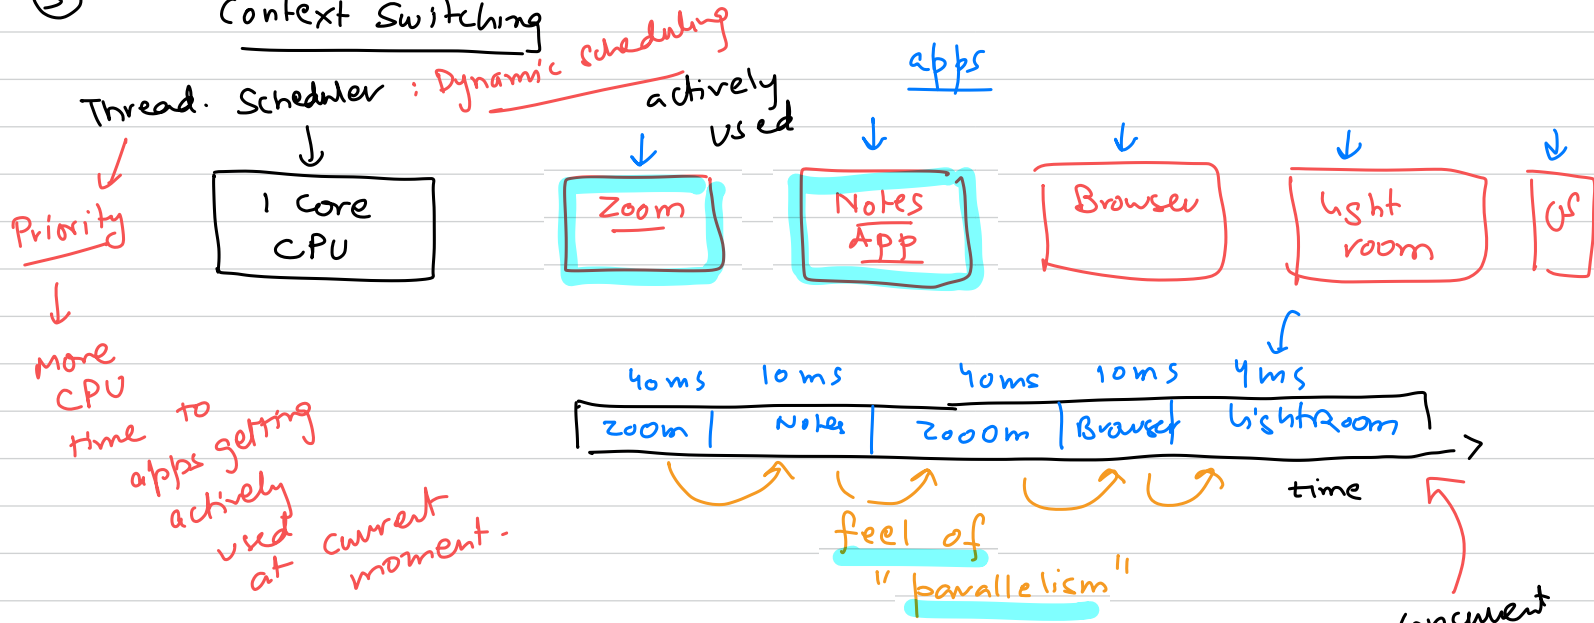 Context Switching
Thread. Scheduler : Dynamic scheduling
actively
used
apps
Priority
1 Core
CPU
Zoom
Notes
App
Browser
Light
room
OS
More
CPU
time to
apps getting
actively
used
at current
moment.
40ms 10ms 40ms 10ms 4ms
Zoom Notes Zooom Browser LightRoom
time
feel of
"parallelism"